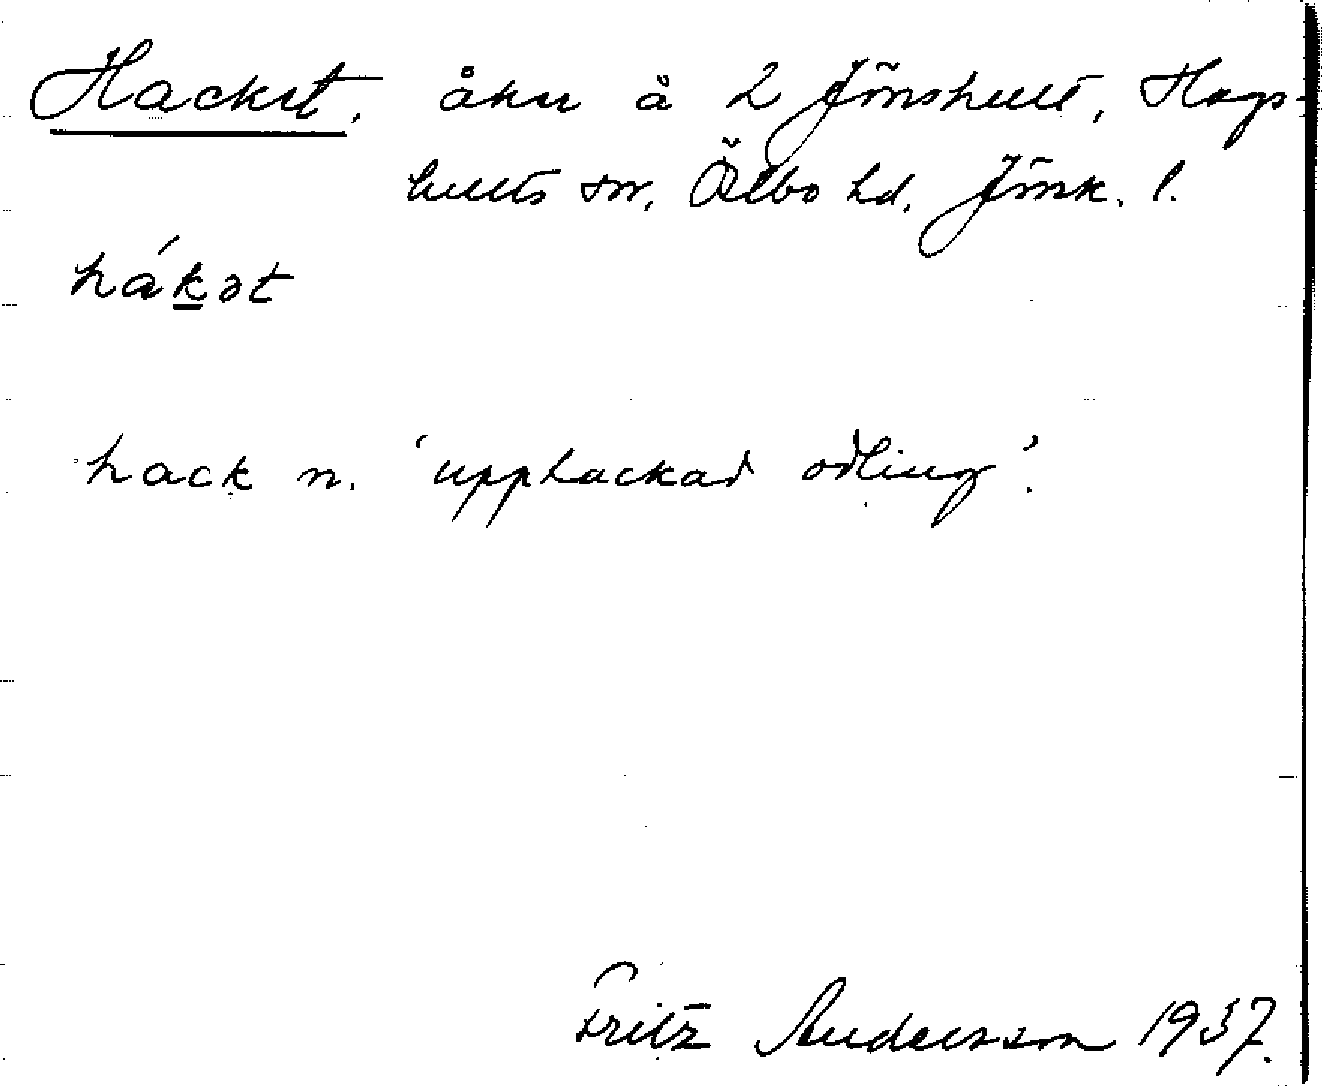 Hacket, åker å 2 Jönshult, Hags-
hults sn, Östbo hd. Jönk. l.
hákət
hack n. 'upphackad odling'.
Fritz Andersson 1937.